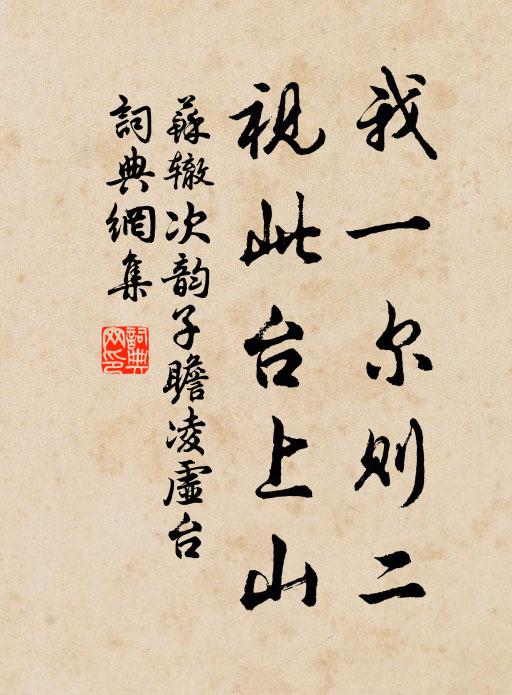 我一尔则二
视此台上山
蘇辙次韵子瞻凌虚台
詞典網集
詞典网印